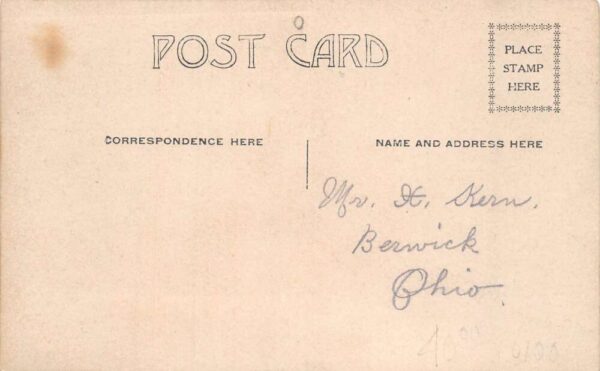 POST CARD
PLACE
STAMP
HERE
CORRESPONDENCE HERE
NAME AND ADDRESS HERE
Mr. H. Kern.
Berwick
Ohio.